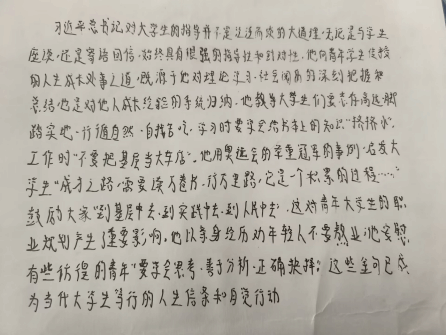 习近平总书记对大学生的指导并不是泛泛而谈的大道理,无论是与学生
座谈,还是寄语回信,始终具有很强的指导性和针对性。他向青年学生传授
的人生成长处事之道,既源于他对理论学习、社会阅历的深刻把握和
总结,也是对他人成长经验的系统归纳。他教导大学生们要志存高远,脚
踏实地,行循自然,自找苦吃,学习时要学会给书本上的知识“挤挤水”,
工作时“不要把基层当大车店”。他用奥运会的举重冠军的事例,启发大
学生“成才之路,需要读万卷书,行万里路,它是个积累的过程……”
鼓励大家“到基层中去,到实践中去,到人民中去”,这对青年大学生的职
业规划产生了重要影响。他以亲身经历劝年轻人不要熬夜,他安慰
有些彷徨的青年“要学会思考、善于分析、正确抉择”,这些金句已成
为当代大学生笃行的人生信条和自觉行动